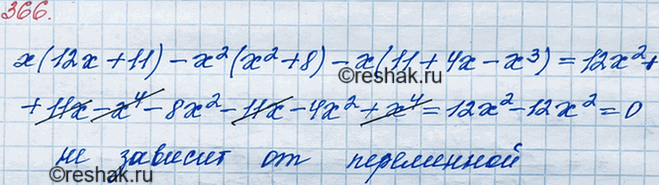 366.
x(12x+11)-x²(x²+8)-x(11+4x-x³)=12x²+
+11x-x⁴-8x²-11x-4x²+x⁴=12x²-12x²=0
не зависит от переменной
©reshak.ru
©reshak.ru